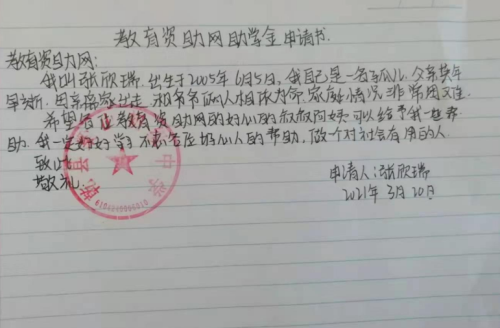 教育资助网助学金申请书.
教育资助网:
我叫张欣瑞.出生于2005年6月5日,我自己是一名孤儿.父亲英年
早逝.母亲离家出走.和爷爷俩人相依为命.家庭情况非常困难.
希望各位教育资助网的好心的叔叔阿姨可以给予我一些帮
助.我一定好好学习不忘各位好心人的帮助,做一个对社会有用的人.
致此
敬礼
申请人:张欣瑞
2021年3月20日